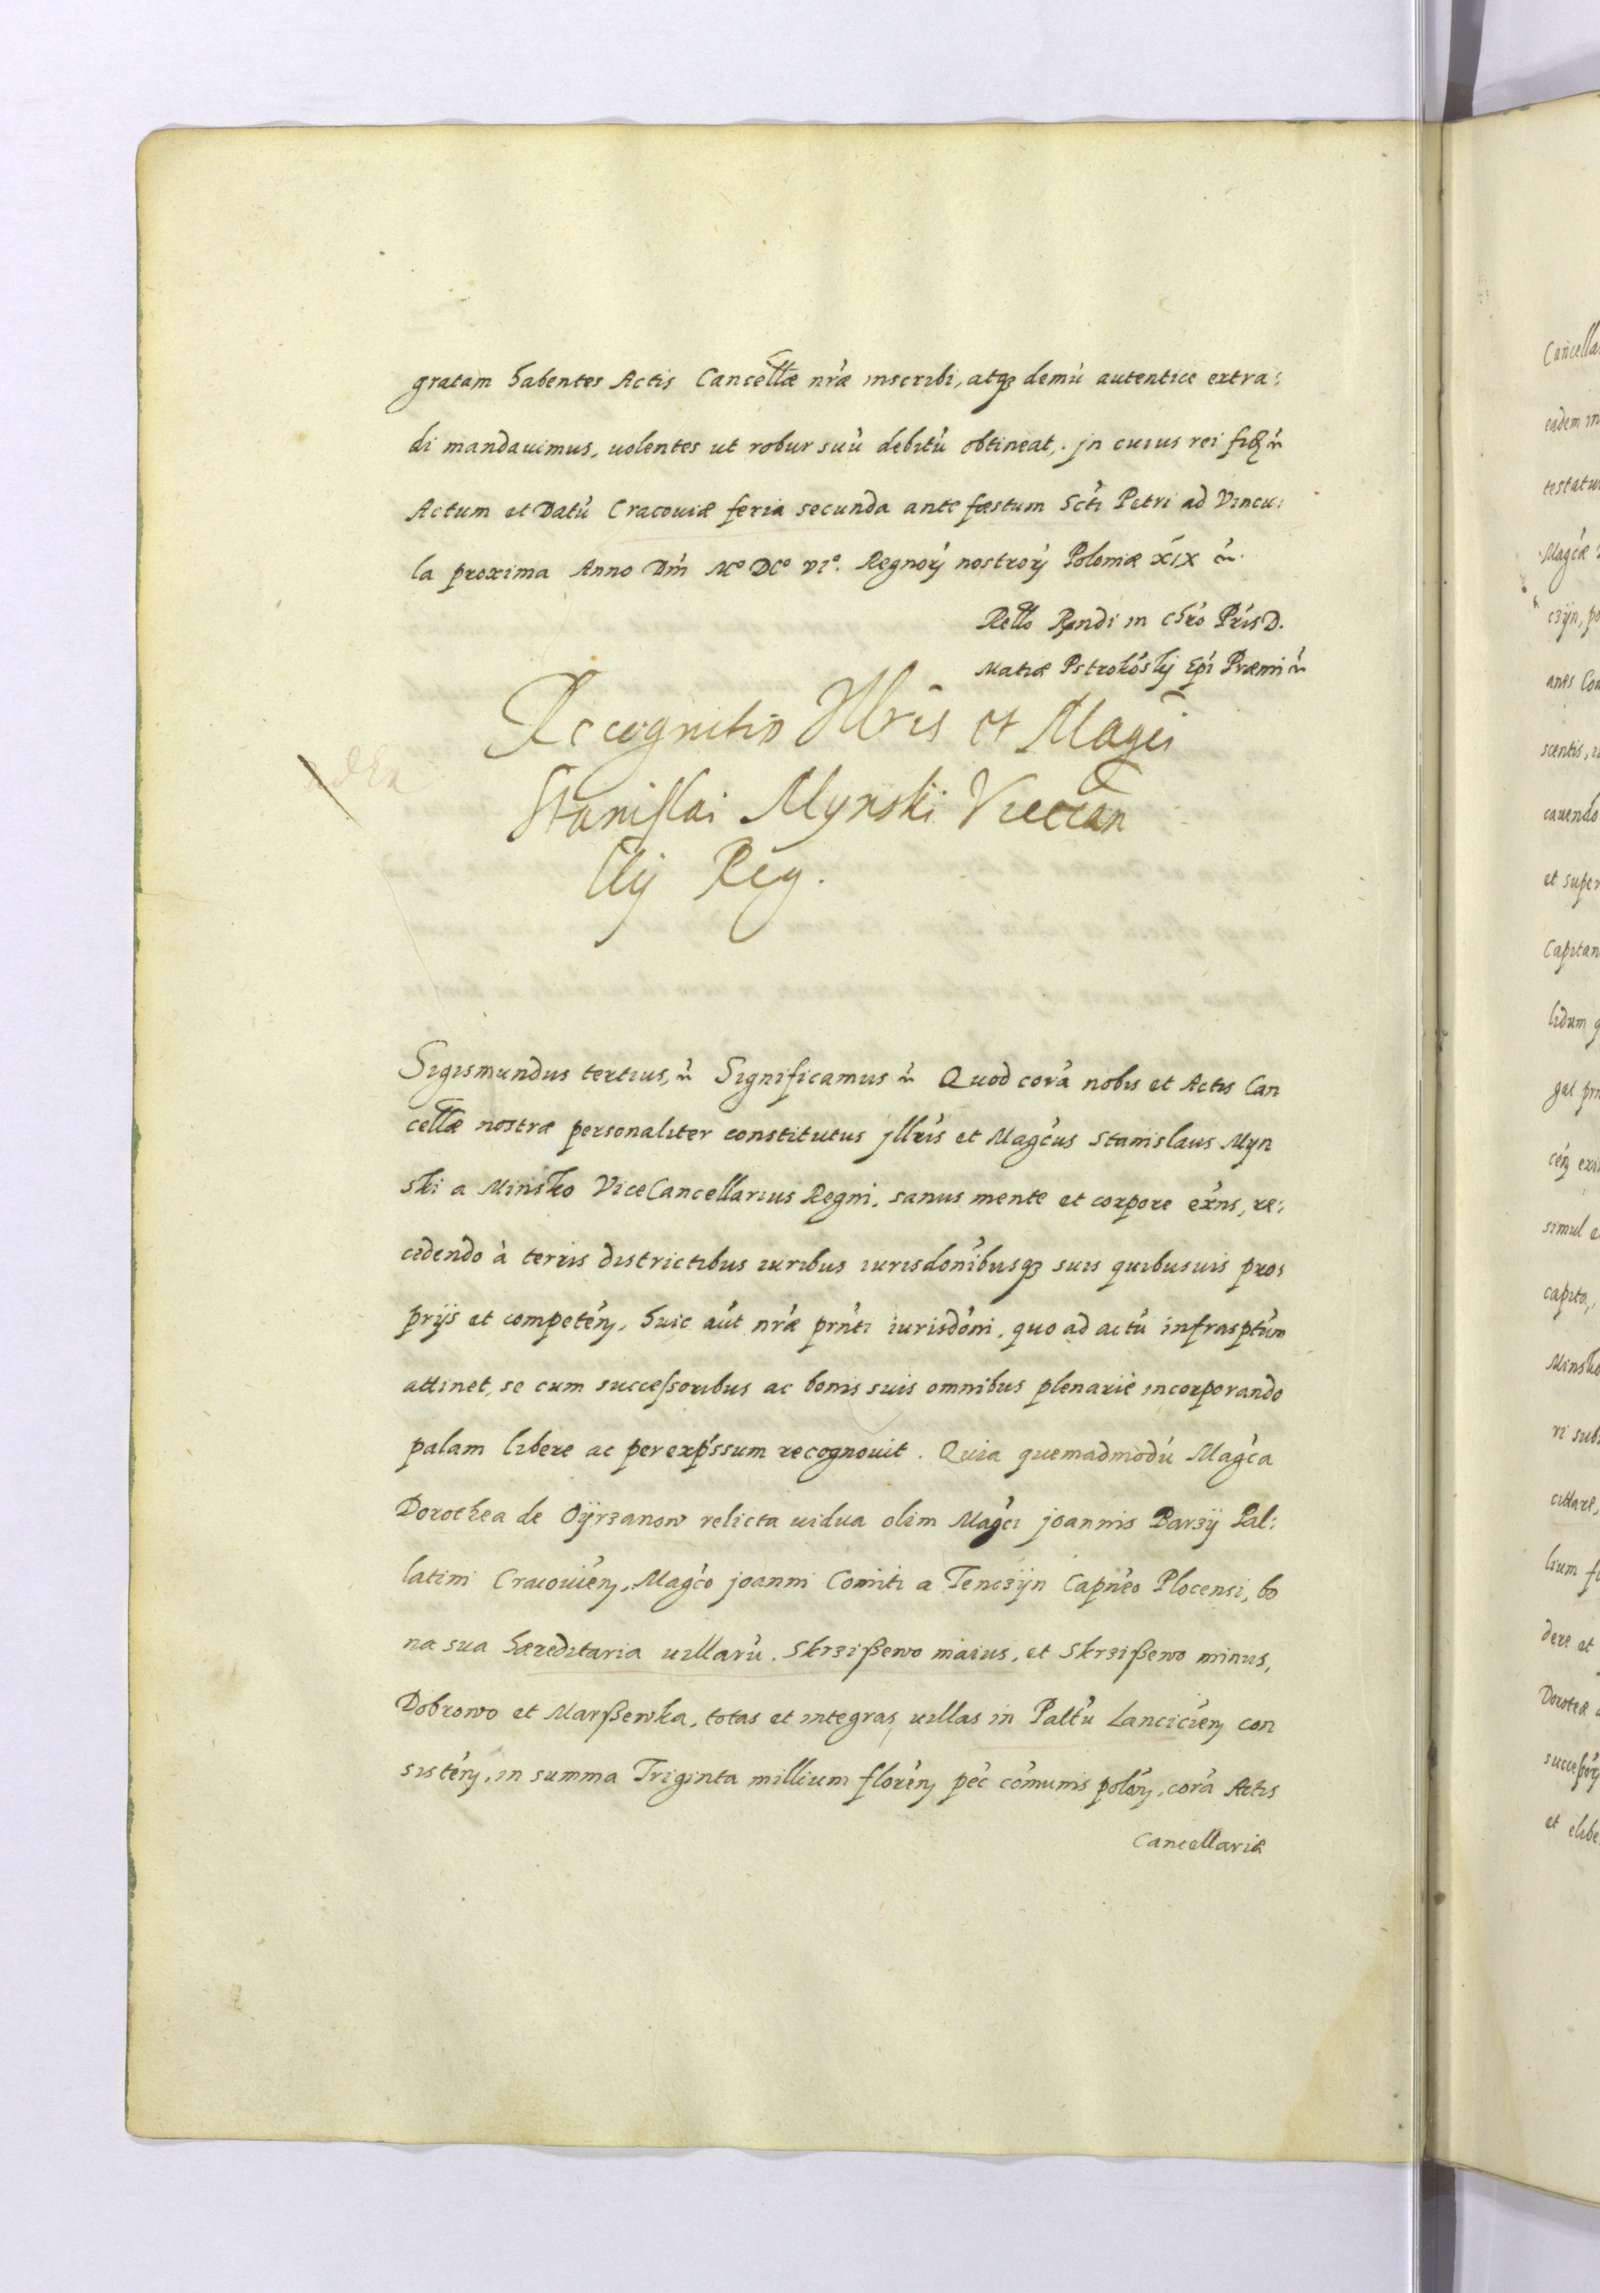 gratam habentes Actis Cancellæ nr̃æ inscribi, atq3 demũ autentice extra:
di mandauimus, uolentes ut robur suũ debitũ obtineat, . jn cuius rei fid
Actum et Datũ Cracouiæ feria secunda ante fæstum Scti Petri ad Vincu:
la proxima Anno Dni Mº DCº VIº. Regnorũ nostrorũ Poloniæ XIX
Rello Rndi in Chro Pris D.
Matiæ Pstrokoskij Epi Præmi
Recognitio Illris et Magci
Stanislai Mynski Vicecan
cellij Reg.
Sigismundus tertius, Significamus Quod corã nobis et Actis Can
cellæ nostræ personaliter constitutus jllris et Magcus Stanislaus Myn
ski a Minsko ViceCancellarius Regni, sanus mente et corpore exns, re:
cedendo à terris districtibus iuribus iurisdonibusq3 suis quibusuis pro:
prijs et competen, huic aũt nr̃æ prnti iurisdoni, quo ad actũ infrasptum
attinet, se cum successoribus ac bonis suis omnibus plenarie incorporando
palam libere ac per expssum recognouit. Quia quemadmodũ Magca
Dorothea de Oÿrzanow relicta uidua olim Magci joannis Barzÿ Pal:
latini Cracouien, Magco joanni Comiti a Tenczÿn Capneo Plocensi, bo
na sua hæreditaria uillarũ, Skrzißewo maius, et Skrzißewo minus,
Dobrowo et Marßewka, totas et integras uillas in Paltu Lancicien con
sisten, in summa Triginta millium floren pec comunis polon, corã Actis
Cancellariæ